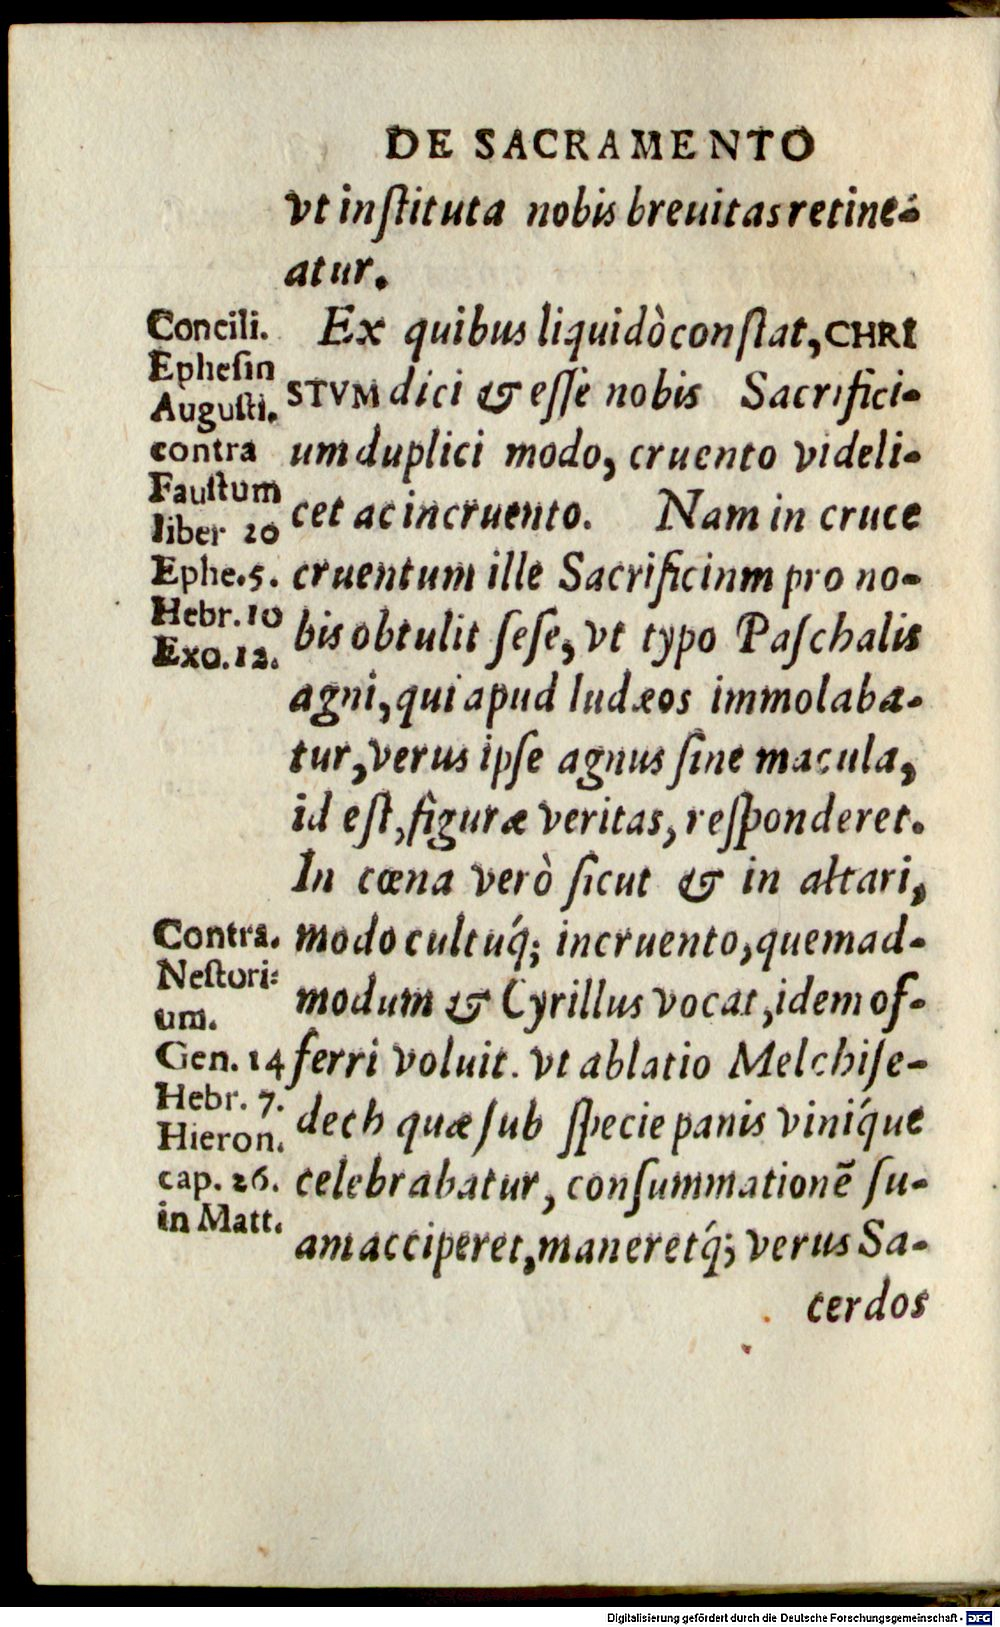 DE SACRAMENTO
vt inſtituta nobis breuitas retine-
atur.
Ex quibus liquidò conſtat, CHRI
STVM dici & eſſe nobis Sacrifici-
um duplici modo, cruento videli-
cet ac incruento. Nam in cruce
cruentum ille Sacrificinm pro no-
bis obtulit ſeſe, vt typo Paſchalis
agni, qui apud Iudæos immolaba-
tur, verus ipſe agnus ſine macula,
id eſt, figuræ veritas, reſponderet.
In cœna verò ſicut & in altari,
modo cultuq́; incruento, quemad-
modum & Cyrillus vocat, idem of-
ferri voluit. vt ablatio Melchiſe-
dech quæ ſub ſpecie panis viniq́ue
celebrabatur, conſummationẽ ſu-
am acciperet, maneretq́; verus Sa-
cerdos
Concili.
Epheſin
Auguſti.
contra
Fauſtum
liber 20
Ephe. 5.
Hebr. 10
Exo. 12.
Contra.
Neſtori-
um.
Gen. 14
Hebr. 7.
Hieron.
cap. 26.
in Matt.
Digitalisierung gefördert durch die Deutsche Forschungsgemeinschaft - DFG